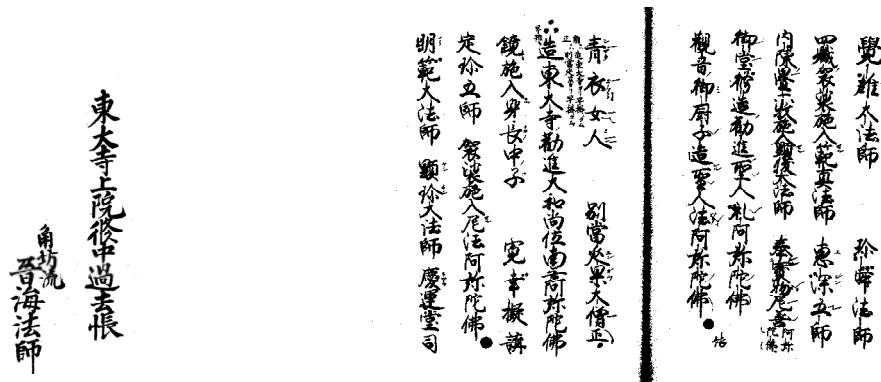 覺雅大法師 珎幸法師
四職袈裟施入範真法師 惠深五師
内陳疊六枚施入顕俊大法師 奉素物尼善阿弥陀佛
御堂修造勸進聖人礼阿弥陀佛
觀音御厨子造聖人法阿弥陀佛
青衣女人 別當延果大僧正
造東大寺勸進大和尚位南無阿弥陀佛
鏡施入身長中子 寛幸擬講
定珎五師 袈裟施入尼法阿弥陀佛
明範大法師 顕珎大法師 慶運堂司
東大寺上院修中過去帳
角坊流
晋海法師